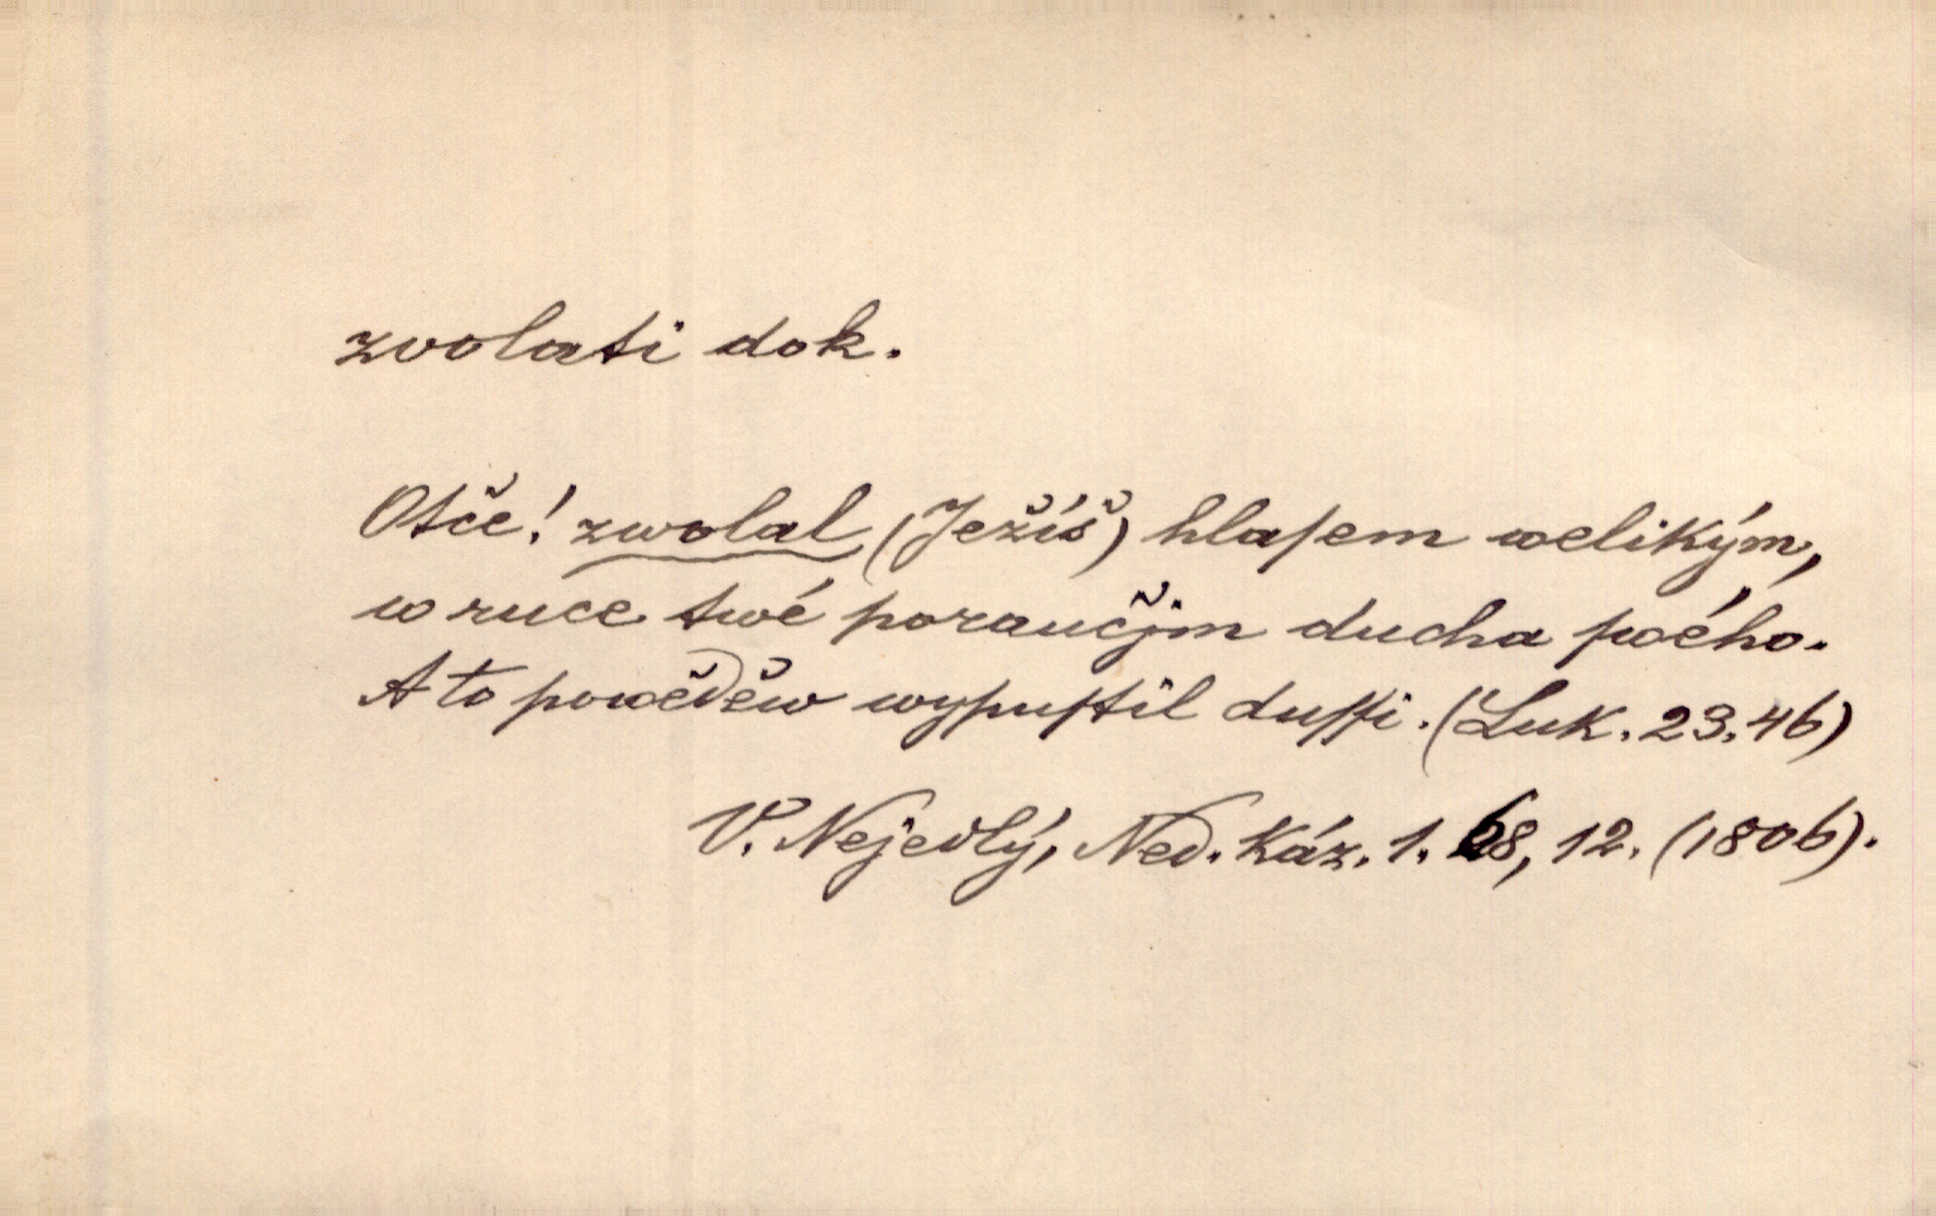 zvolati dok.
Otče! zwolal (Ježíš) hlaſem welikým,
w ruce twé poraučjm ducha ſwého.
A to powěděw wypuſtil duſſi. (Luk. 23. 46)
V. Nejedlý, Ned. Káz. 1. 68, 12. (1806).